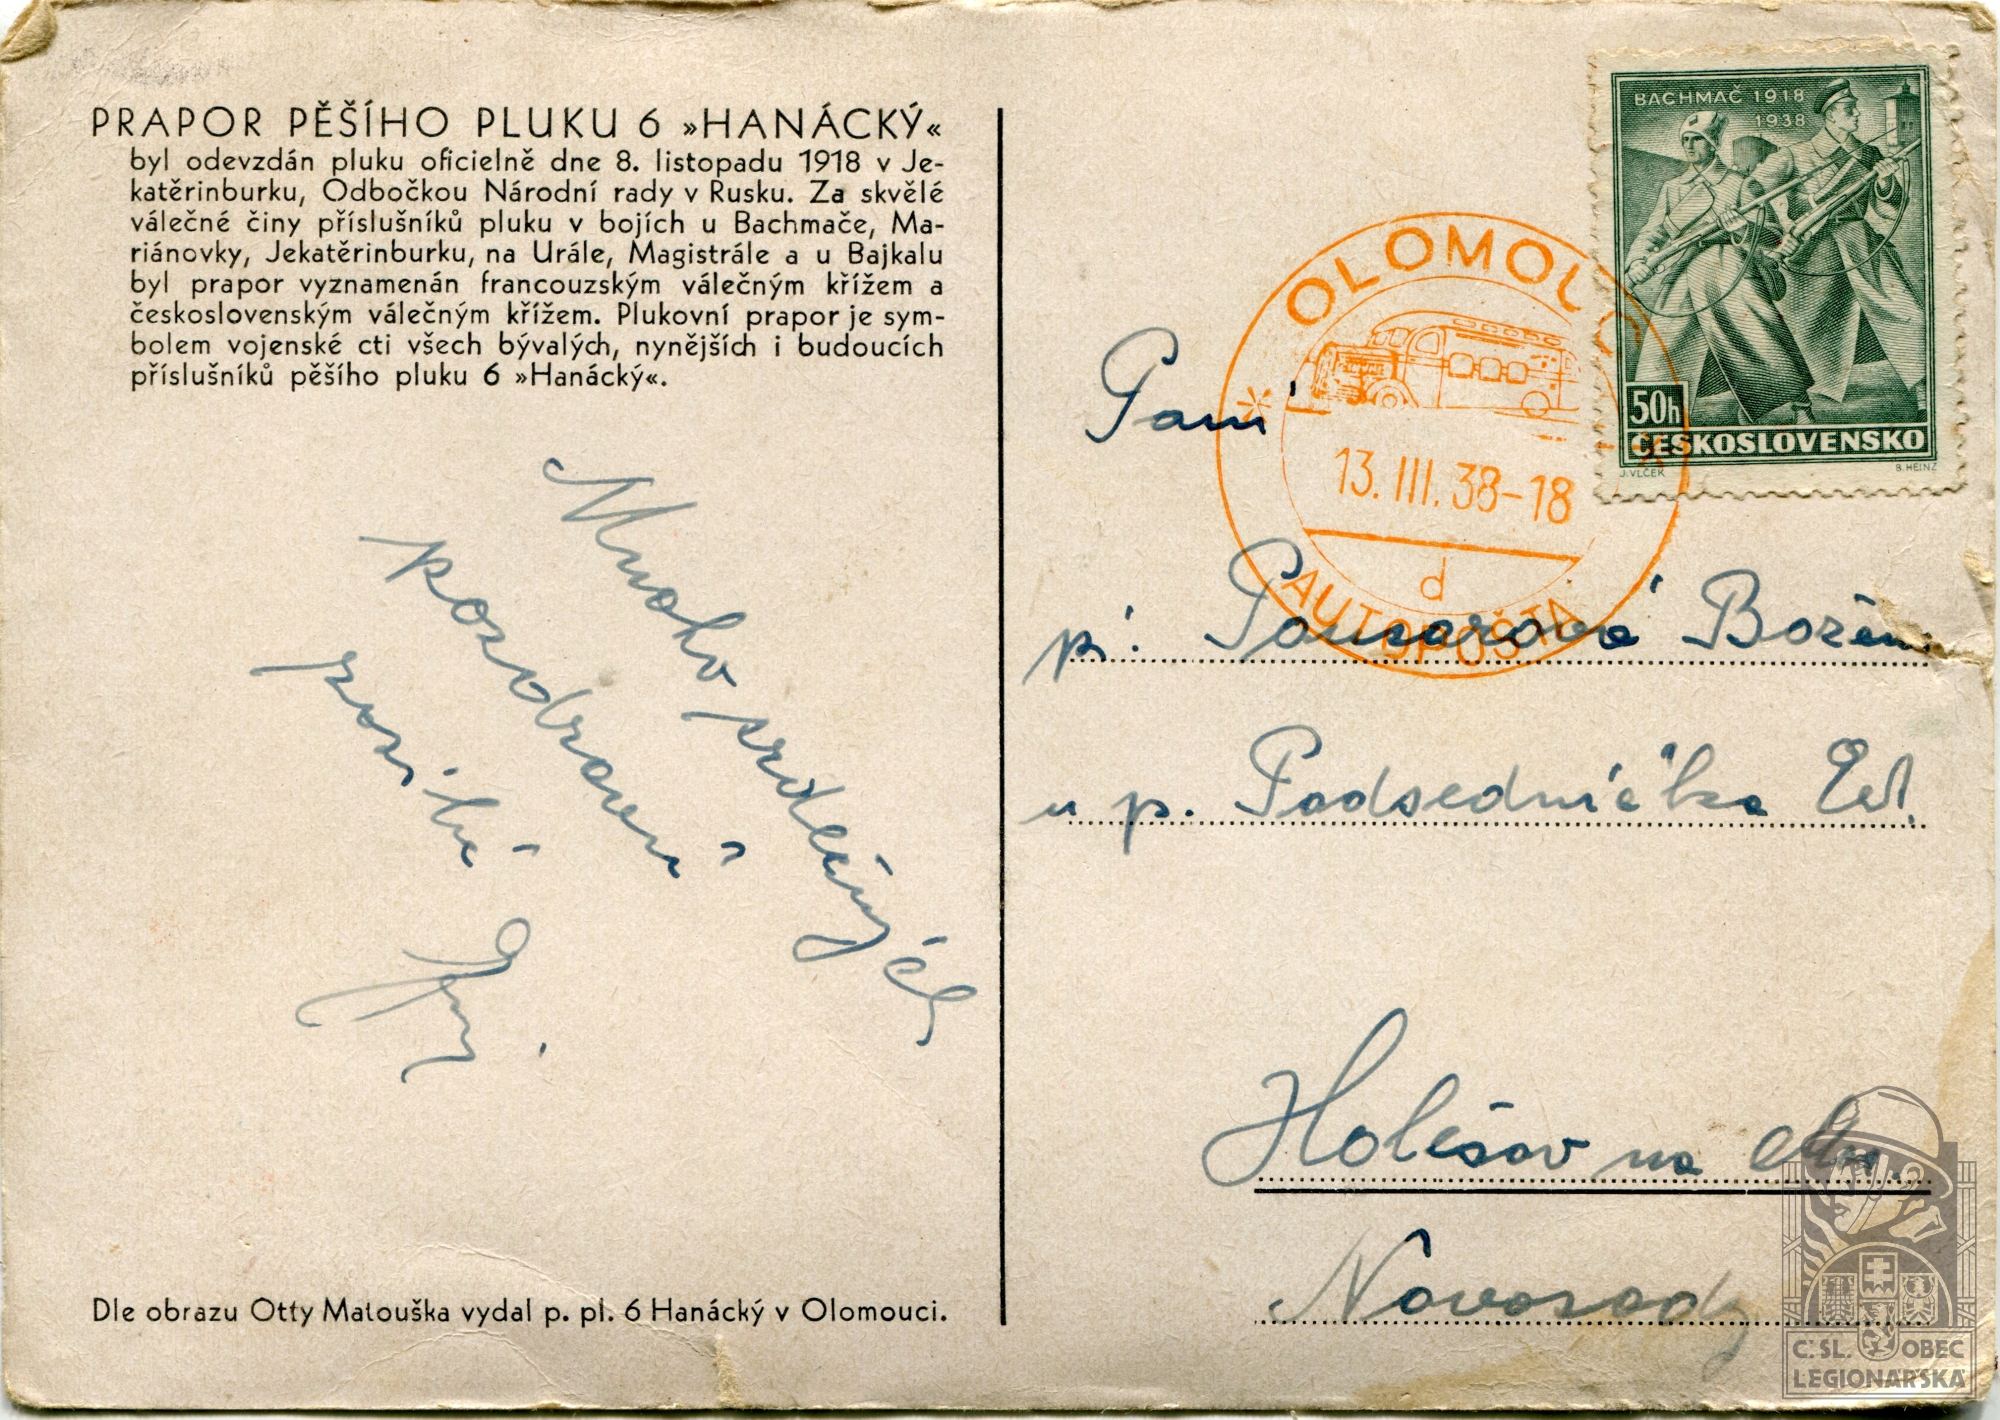 PRAPOR PĚŠÍHO PLUKU 6 »HANÁCKÝ«
byl odevzdán pluku oficielně dne 8. listopadu 1918 v Je-
katěrinburku, Odbočkou Národní rady v Rusku. Za skvělé
válečné činy příslušníků pluku v bojích u Bachmače, Ma-
riánovky, Jekatěrinburku, na Urále, Magistrále a u Bajkalu
byl prapor vyznamenán francouzským válečným křížem a
československým válečným křížem. Plukovní prapor je sym-
bolem vojenské cti všech bývalých, nynějších i budoucích
příslušníků pěšího pluku 6 »Hanácký«.
Mnoho srdečných
pozdravů
posílá
Dle obrazu Otty Matouška vydal p. pl. 6 Hanácký v Olomouci.
BACHMAČ 1918
1938
50h
ČESKOSLOVENSKO
J. VLČEK
B. HEINZ
OLOMOUC
13. III. 38-18
d
AUTOPOŠTA
Paní
pí:
Božena
u p. Podsedníčka Ed.
Holešov na Mor.
Novosady
Č. SL. OBEC
LEGIONÁŘSKÁ